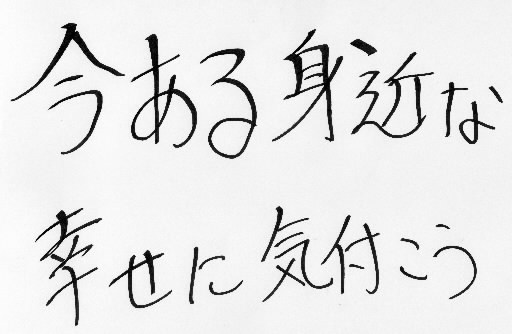 今ある身近な
幸せに気付こう